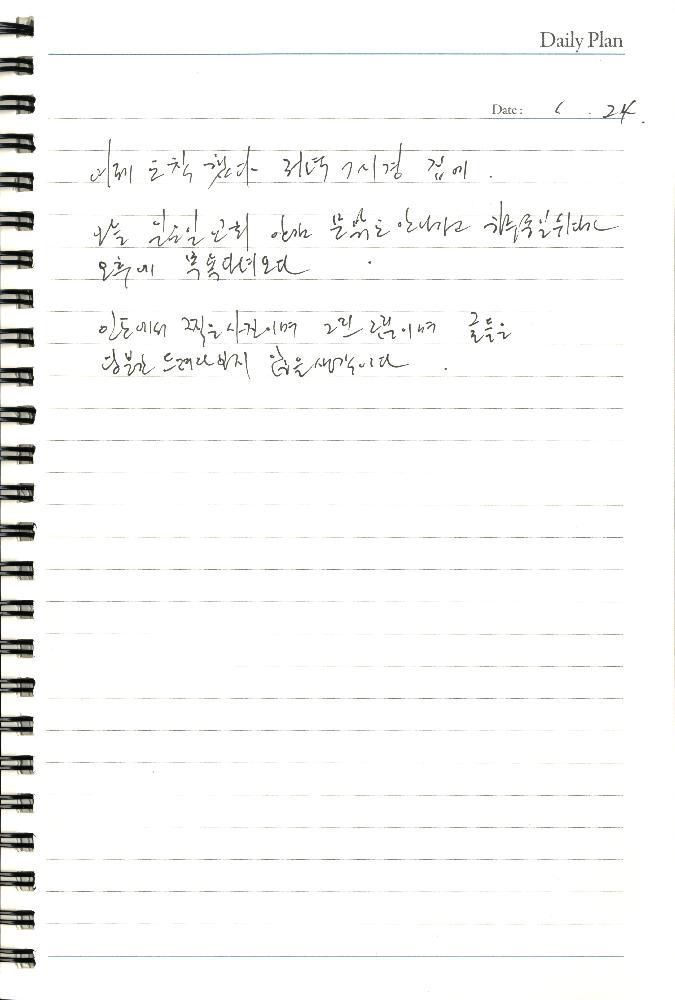 Daily Plan
Date : 6 . 24.
어제 도착했다 저녁 7시경 집에.
오늘 일요일 교회 안가고 문밖도 안나가고 하루종일 쉬다가
오후에 목욕다녀오다
인도에서 찍은 사진이며 그린 그림이며 글들을
당분간 드려다 보지 않을 생각이다.